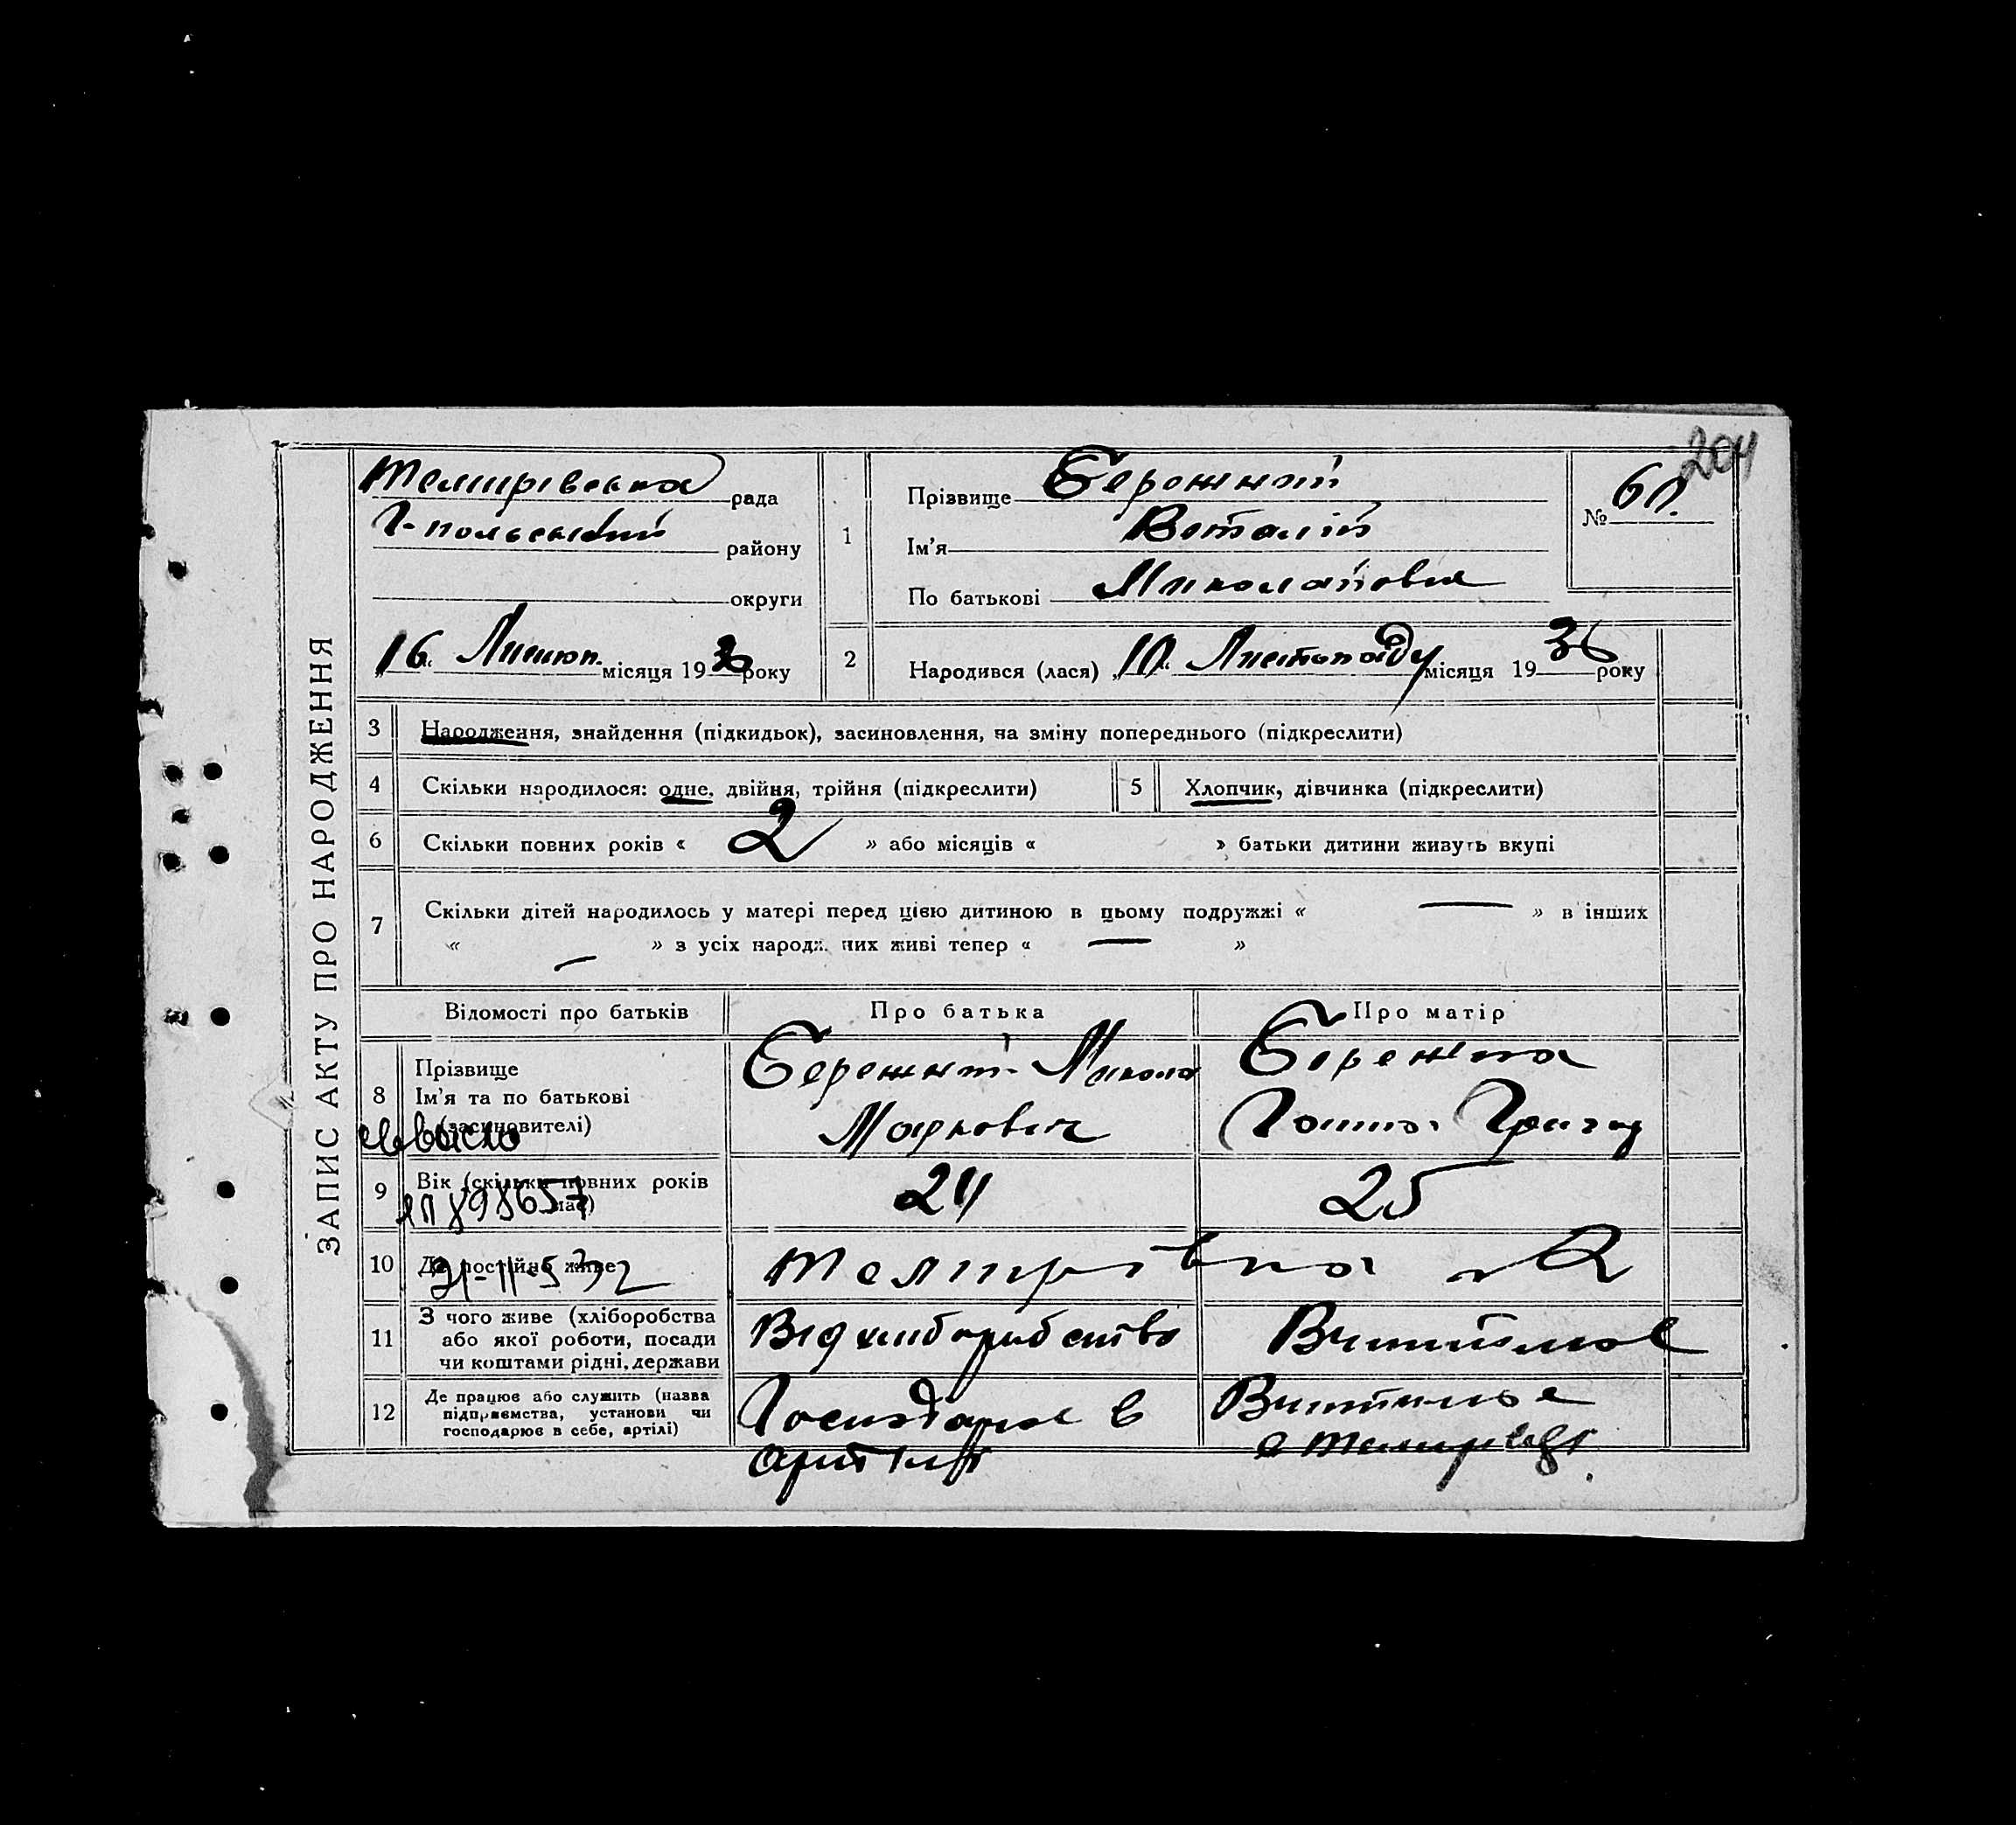 204
ЗАПИС АКТУ ПРО НАРОДЖЕННЯ
Темирівська рада
Г-польський району
округи
„16“ Листоп. місяця 1936 року
1
Прізвище Бережний
Ім'я Віталій
По батькові Миколайович
№ 60.
2
Народився (лася) „10“ Листопаду місяця 1936 року
3 Народження, знайдення (підкидьок), засиновлення, на зміну попереднього (підкреслити)
4 Скільки народилося: одне, двійня, трійня (підкреслити)
5 Хлопчик, дівчинка (підкреслити)
6 Скільки повних років « 2 » або місяців « » батьки дитини живуть вкупі
7 Скільки дітей народилось у матері перед цією дитиною в цьому подружжі « — » в інших
« — » з усіх народж. них живі тепер « — »
Відомості про батьків
Про батька
Про матір
8 Прізвище
Ім'я та по батькові
(засиновителі)
Бережний Микола
Маркович
Бережна
Ганна Григор
9 Вік (скільки повних років має)
24
25
10 Де постійно живе
Темирівка
11 З чого живе (хліборобства
або якої роботи, посади
чи коштами рідні, держави
Від хліборобства
Вчителює
12 Де працює або служить (назва
підприємства, установи чи
господарює в себе, артілі)
Господарює в
артілі
Вчителює
в Темирівці